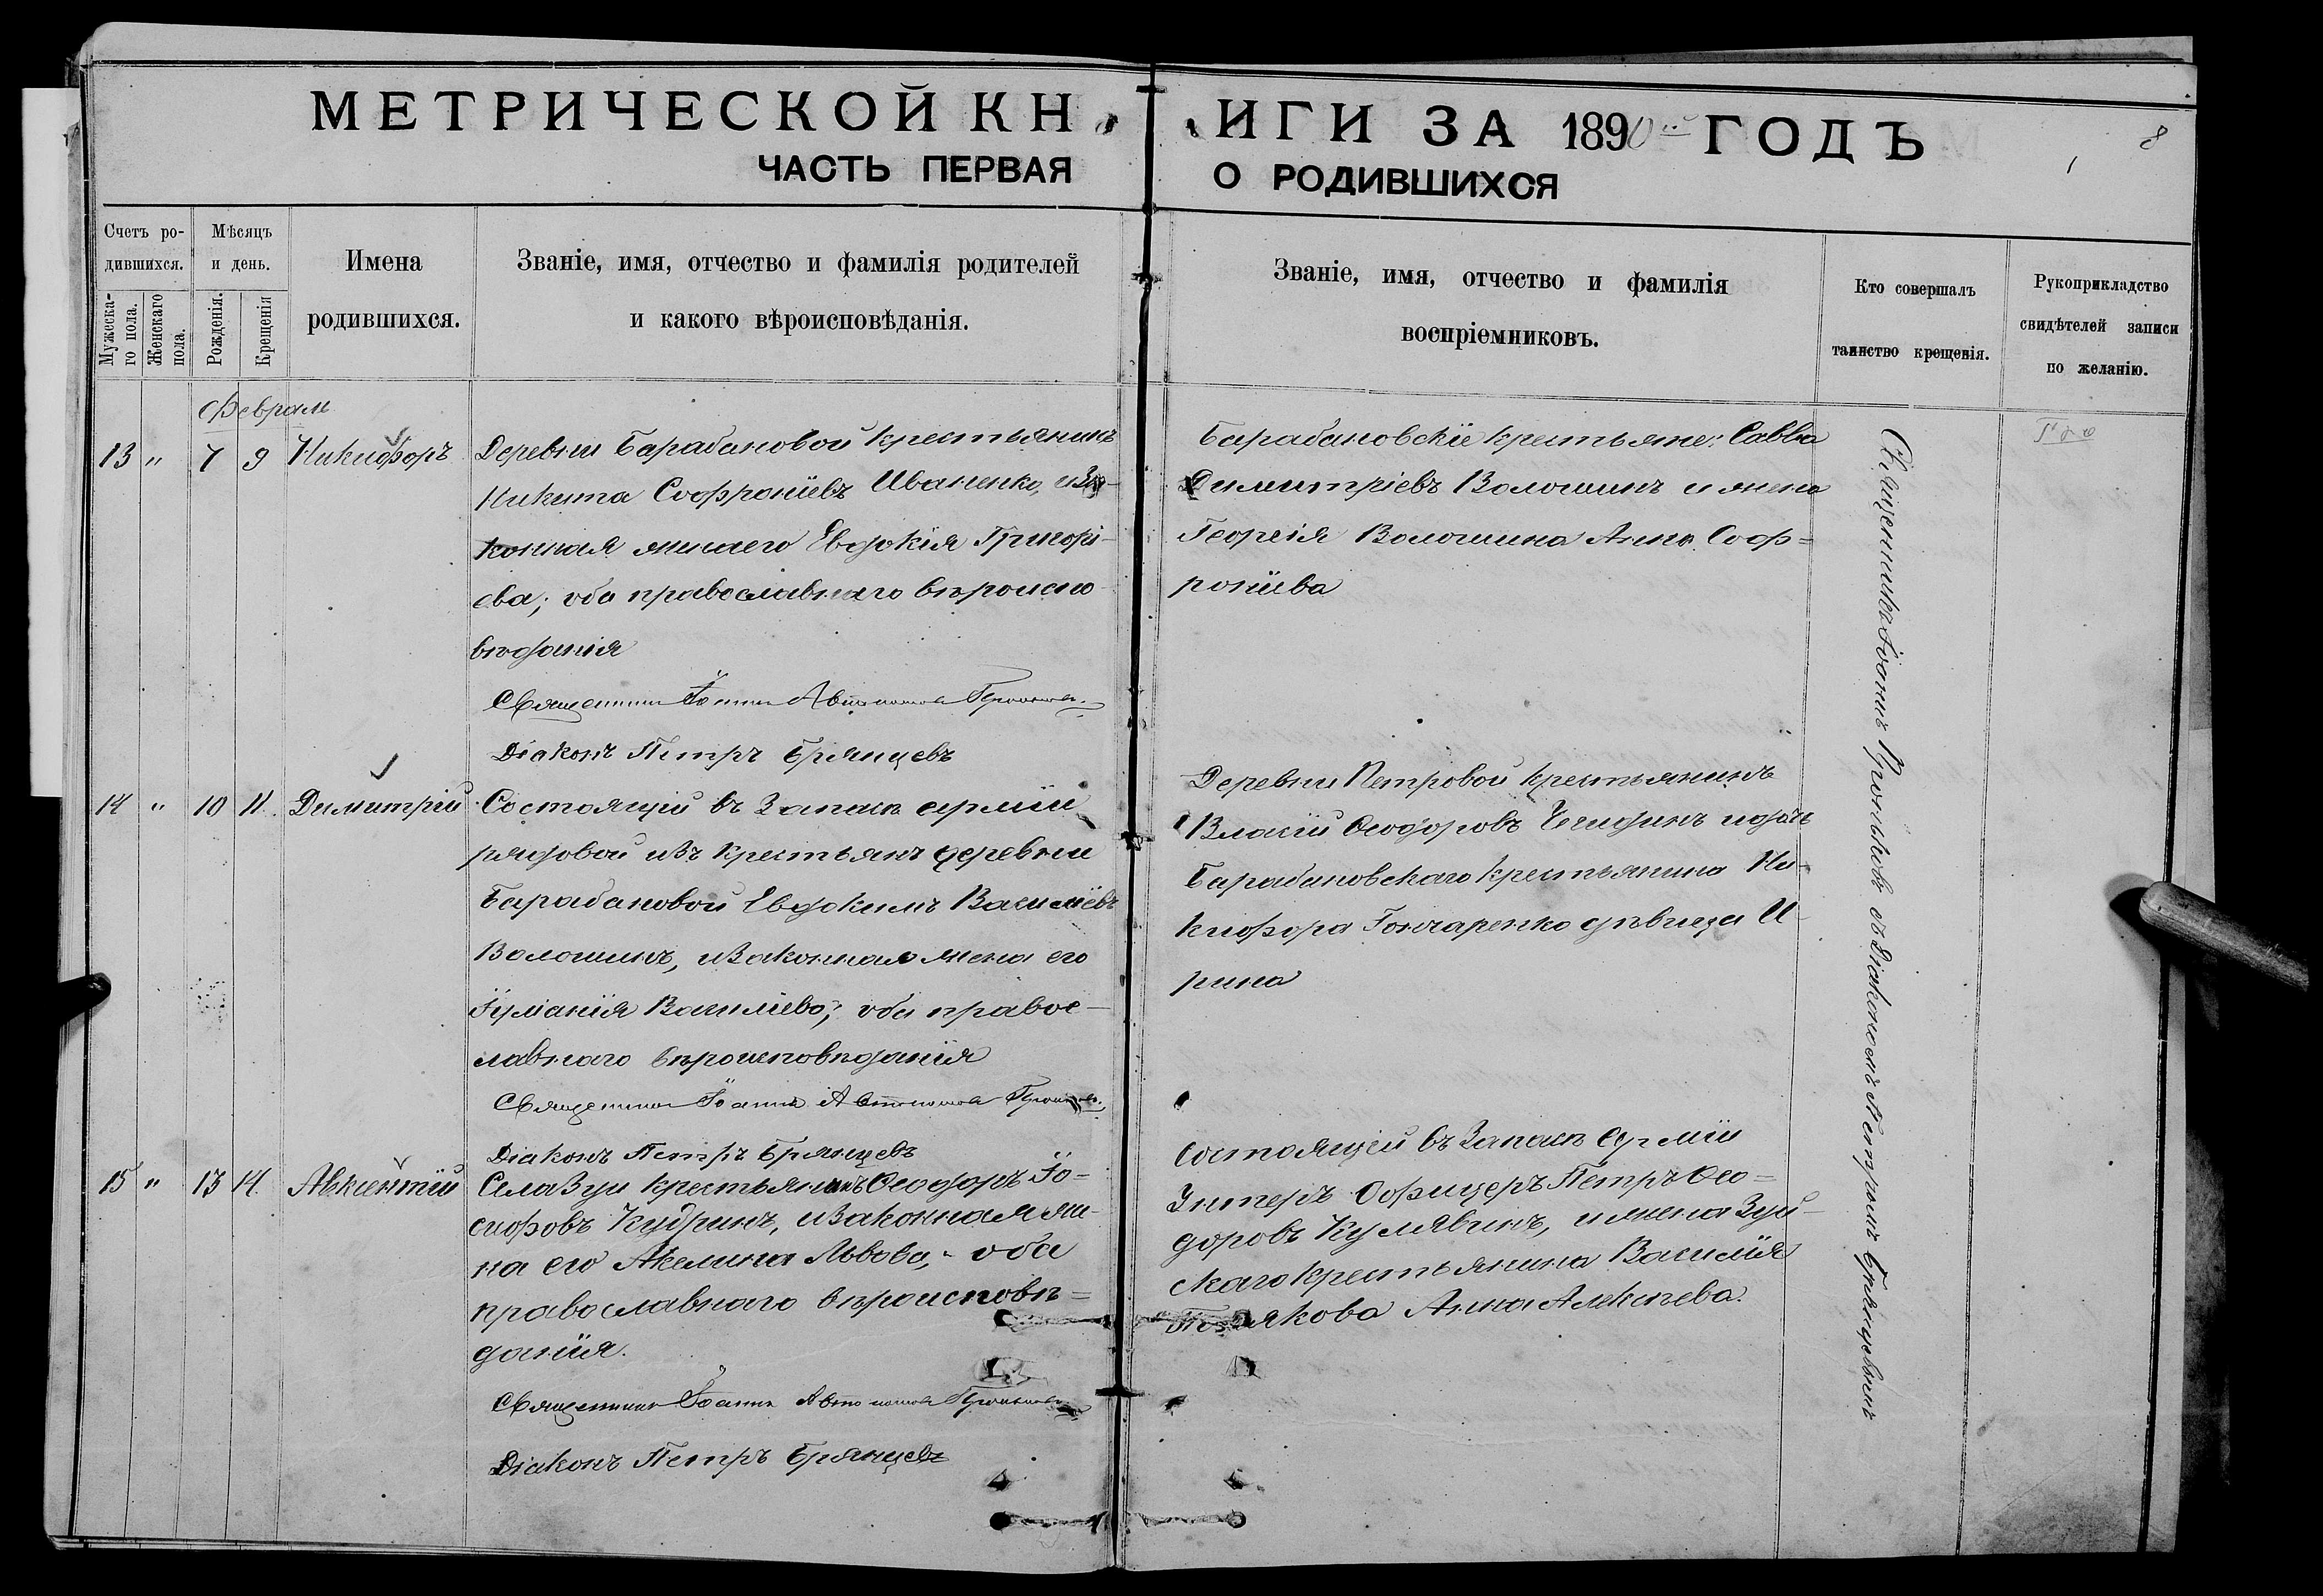 МЕТРИЧЕСКОЙ КНИГИ ЗА 1890й ГОДЪ
8
ЧАСТЬ ПЕРВАЯ О РОДИВШИХСЯ
Счетъ родившихся.
Мужескаго пола.
Женскаго пола.
Мѣсяцъ и день.
Рожденія.
Крещенія
Имена
родившихся.
Званіе, имя, отчество и фамилія родителей
и какого вѣроисповѣданія.
Званіе, имя, отчество и фамилія
воспріемниковъ.
Кто совершалъ
таинство крещенія.
Рукоприкладство
свидѣтелей записи
по желанію.
Февраль
13 " 7 9 Никифоръ
Деревни Барабановой крестьянинъ
Никита Софроніевъ Иваненко, и за-
конная жена его Евдокія Григорі-
ева; оба православнаго вѣроиспо-
вѣданія
Священникъ Іоаннъ Автономовъ
Діаконъ Петръ Брянцевъ
Барабановскіе крестьяне: Савва
Димитріевъ Волошинъ и жена
Георгія Волошина Анна Соф-
роніева
14 " 10 11. Димитрій
Состоящій въ запасѣ арміи
рядовой изъ крестьянъ деревни
Барабановой Евдокимъ Василіевъ
Волошинъ, и законная жена его
Іуліанія Василіева; оба правос-
лавнаго вѣроисповѣданія
Священникъ Іоаннъ Автономовъ
Діаконъ Петръ Брянцевъ
Деревни Петровой крестьянинъ
Власій Ѳеодоровъ и дочь
Барабановскаго крестьянина Ни-
кифора Гончаренко дѣвица И-
рина
15 " 13 14. Авксентій
Села Зуи крестьянинъ Ѳеодоръ Іо-
сифовъ Кудринъ, и законная же-
на его Акелина Львова, оба
православнаго вѣроисповѣ-
данія.
Священникъ Іоаннъ Автономовъ
Діаконъ Петръ Брянцевъ
Состоящій въ запасѣ арміи
Унтеръ Офицеръ Петръ Ѳео-
доровъ Кулявинъ, и жена Зуй-
скаго крестьянина Василія
Анна Алексѣева.
Священникъ Іоаннъ съ Діакономъ Петромъ Брянцевымъ